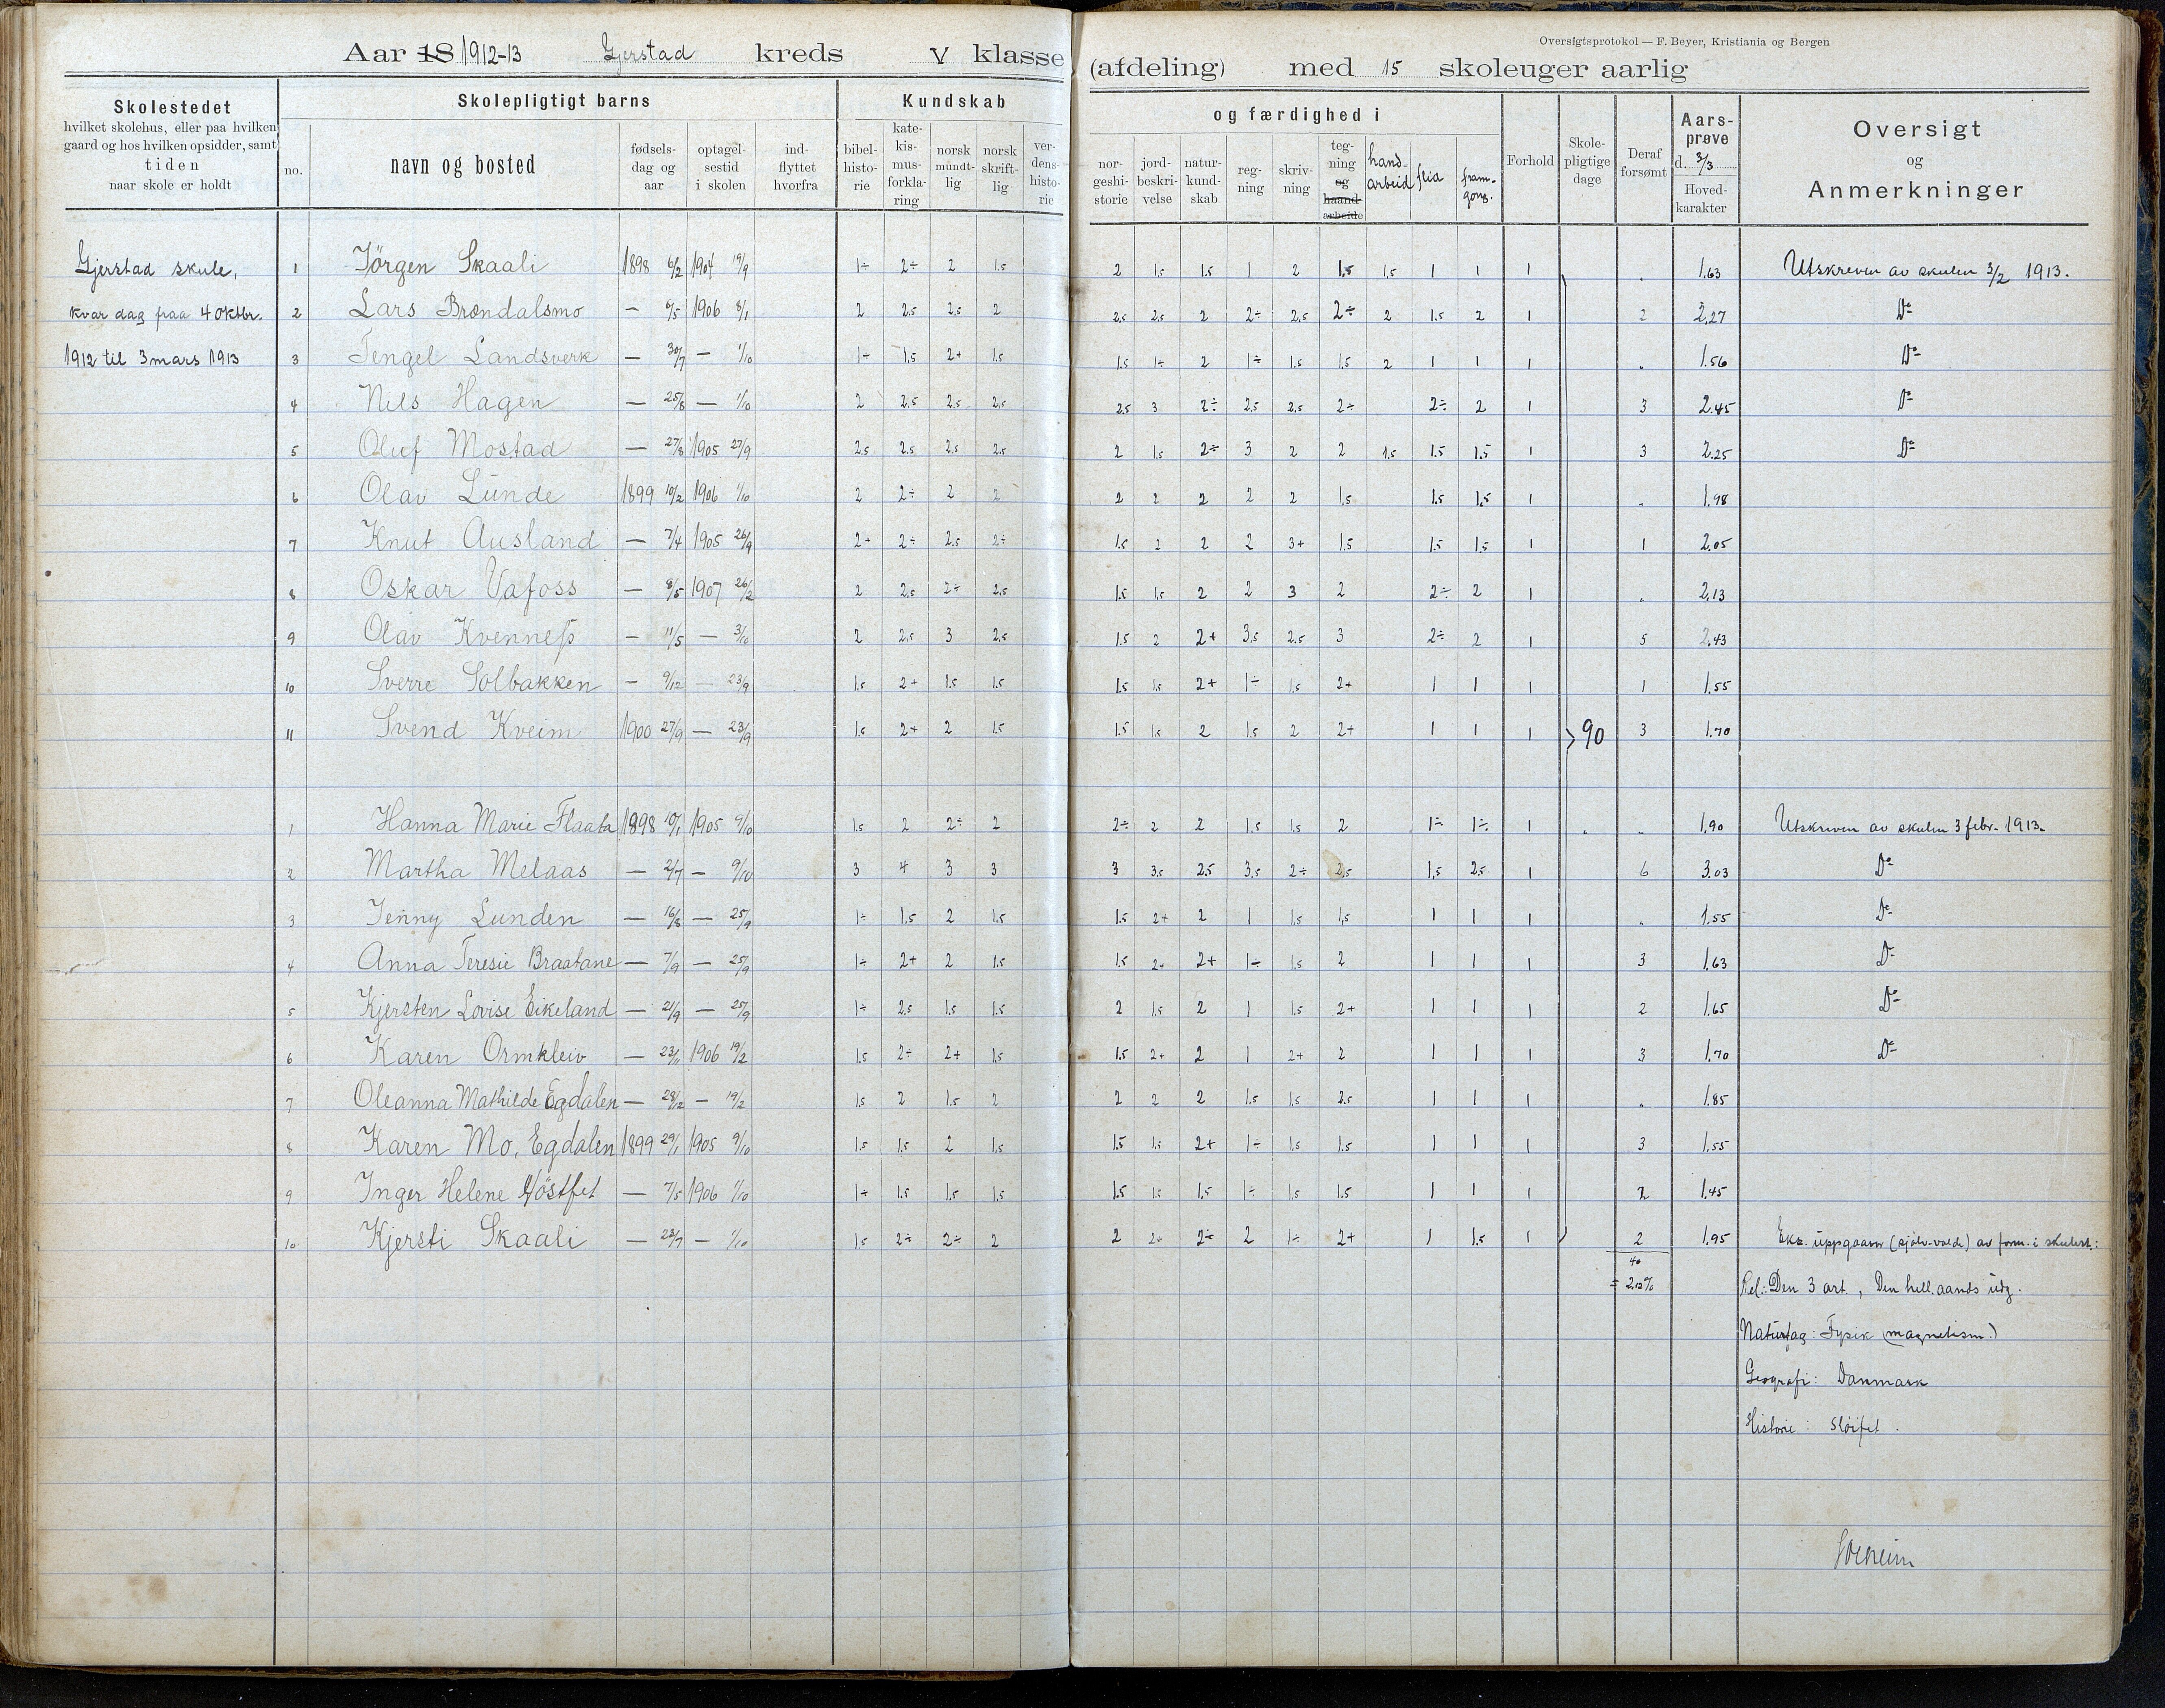 Oversigtsprotokol — F. Beyer, Kristiania og Bergen
Aar 18 1912-13 Gjerstad kreds V klasse (afdeling) med 15 skoleuger aarlig
Skolestedet
hvilket skolehus, eller paa hvilken
gaard og hos hvilken opsidder, samt
tiden
naar skole er holdt
Skolepligtigt barns
no.
navn og bosted
fødsels-
dag og
aar
optagel-
sestid
i skolen
ind-
flyttet
hvorfra
Kundskab
bibel-
histo-
rie
kate-
kis-
mus-
forkla-
ring
norsk
mundt-
lig
norsk
skrift-
lig
ver-
dens-
histo-
rie
og færdighed i
nor-
geshi-
storie
jord-
beskri-
velse
natur-
kund-
skab
reg-
ning
skriv-
ning
teg-
ning
og
haand-
arbeide
hand-
arbeid
flid
fram-
gong.
Forhold
Skole-
pligtige
dage
Deraf
forsømt
Aars-
prøve
d. 3/3
Hoved-
karakter
Oversigt
og
Anmerkninger
Gjerstad skule,
kvar dag fraa 4 oktbr.
1912 til 3 mars 1913
1 Jörgen Skaali 1898 6/2 1904 19/9 1÷ 2÷ 2 1.5 2 1.5 1.5 1 2 1.5 1.5 1 1 1 „ 1.63 Utskreven av skulen 3/2 1913.
2 Lars Brændalsmo — 6/5 1906 8/1 2 2.5 2.5 2 2.5 2.5 2 2÷ 2.5 2÷ 2 1.5 2 1 2 2.27 Do
3 Tengel Landsverk — 30/7 — 1/10 1÷ 1.5 2+ 1.5 1.5 1÷ 2 1÷ 1.5 1.5 2 1 1 1 „ 1.56 Do
4 Nils Hagen — 25/8 — 1/10 2 2.5 2.5 2.5 2.5 3 2÷ 2.5 2.5 2÷ 2÷ 2 1 3 2.45 Do
5 Oluf Mostad — 27/8 1905 27/9 2.5 2.5 2.5 2.5 2 1.5 2÷ 3 2 2 1.5 1.5 1.5 1 3 2.25 Do
6 Olav Lunde 1899 10/2 1906 1/10 2 2÷ 2 2 2 2 2 2 2 1.5 1.5 1.5 1 „ 1.98
7 Knut Ausland — 7/4 1905 26/9 2+ 2÷ 2.5 2÷ 1.5 2 2 2 3+ 1.5 1.5 1.5 1 1 2.05
8 Oskar Vafoss — 8/5 1907 26/2 2 2.5 2÷ 2.5 1.5 1.5 2 2 3 2 2÷ 2 1 „ 2.13
9 Olav Kvenness — 11/5 — 3/10 2 2.5 3 2.5 1.5 2 2+ 3.5 2.5 3 2÷ 2 1 5 2.43
10 Sverre Solbakken — 9/12 — 23/9 1.5 2+ 1.5 1.5 1.5 1.5 2+ 1÷ 1.5 2+ 1 1 1 1 1.55
11 Svend Kveim 1900 27/9 — 23/9 1.5 2+ 2 1.5 1.5 1.5 2 1.5 2 2+ 1 1 1 90 3 1.70
1 Hanna Marie Flaata 1898 10/1 1905 9/10 1.5 2 2÷ 2 2÷ 2 2 1.5 1.5 2 1÷ 1÷ 1 „ „ 1.90 Utskreven av skulen 3 febr. 1913.
2 Martha Melaas — 2/7 — 9/10 3 4 3 3 3 3.5 2.5 3.5 2÷ 2.5 1.5 2.5 1 6 3.03 Do
3 Jenny Lunden — 16/8 — 25/9 1÷ 1.5 2 1.5 1.5 2+ 2 1 1.5 1.5 1 1 1 „ 1.55 Do
4 Anna Teresie Braatane — 7/9 — 25/9 1÷ 2+ 2 1.5 1.5 2+ 2+ 1÷ 1.5 2 1 1 1 3 1.63 Do
5 Kjersten Lovise Eikeland — 21/9 — 25/9 1÷ 2.5 1.5 1.5 2 1.5 2 1 1.5 2+ 1 1 1 2 1.65 Do
6 Karen Ormkleiv — 23/11 1906 19/2 1.5 2÷ 2+ 1.5 1.5 2+ 2 1 2+ 2 1 1 1 3 1.70 Do
7 Oleanna Mathilde Egdalen — 28/12 — 19/2 1.5 2 1.5 2 2 2 2 1.5 1.5 2.5 1 1 1 „ 1.85
8 Karen Mo, Egdalen 1899 29/1 1905 9/10 1.5 1.5 2 1.5 1.5 1.5 2+ 1÷ 1.5 1.5 1 1 1 3 1.55
9 Inger Helene Höstfet — 7/5 1906 1/10 1÷ 1.5 1.5 1.5 1.5 1.5 1.5 1÷ 1.5 1.5 1 1 1 2 1.45
10 Kjersti Skaali — 23/7 — 1/10 1.5 2÷ 2÷ 2 2 2+ 2÷ 2 1÷ 2+ 1 1.5 1 2 1.95 Eks. uppgaavor (sjølv-valde) av form. i skulest.:
40
= 2.12 %
Rel.: Den 3 art., Den hell. aands udg.
Naturfag: Fysik (magnetism.)
Geografi: Danmark
Historie: Sløifet.